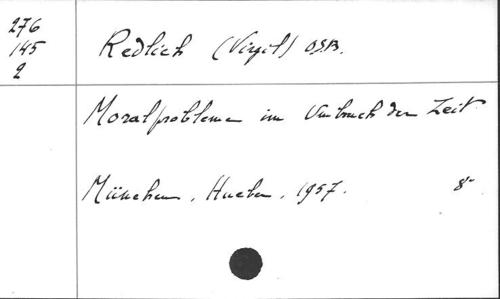 276
145
2
Redlich (Virgil) O.S.B.
Moralprobleme im Umbruch der Zeit
München, Hueber, 1957. 8°